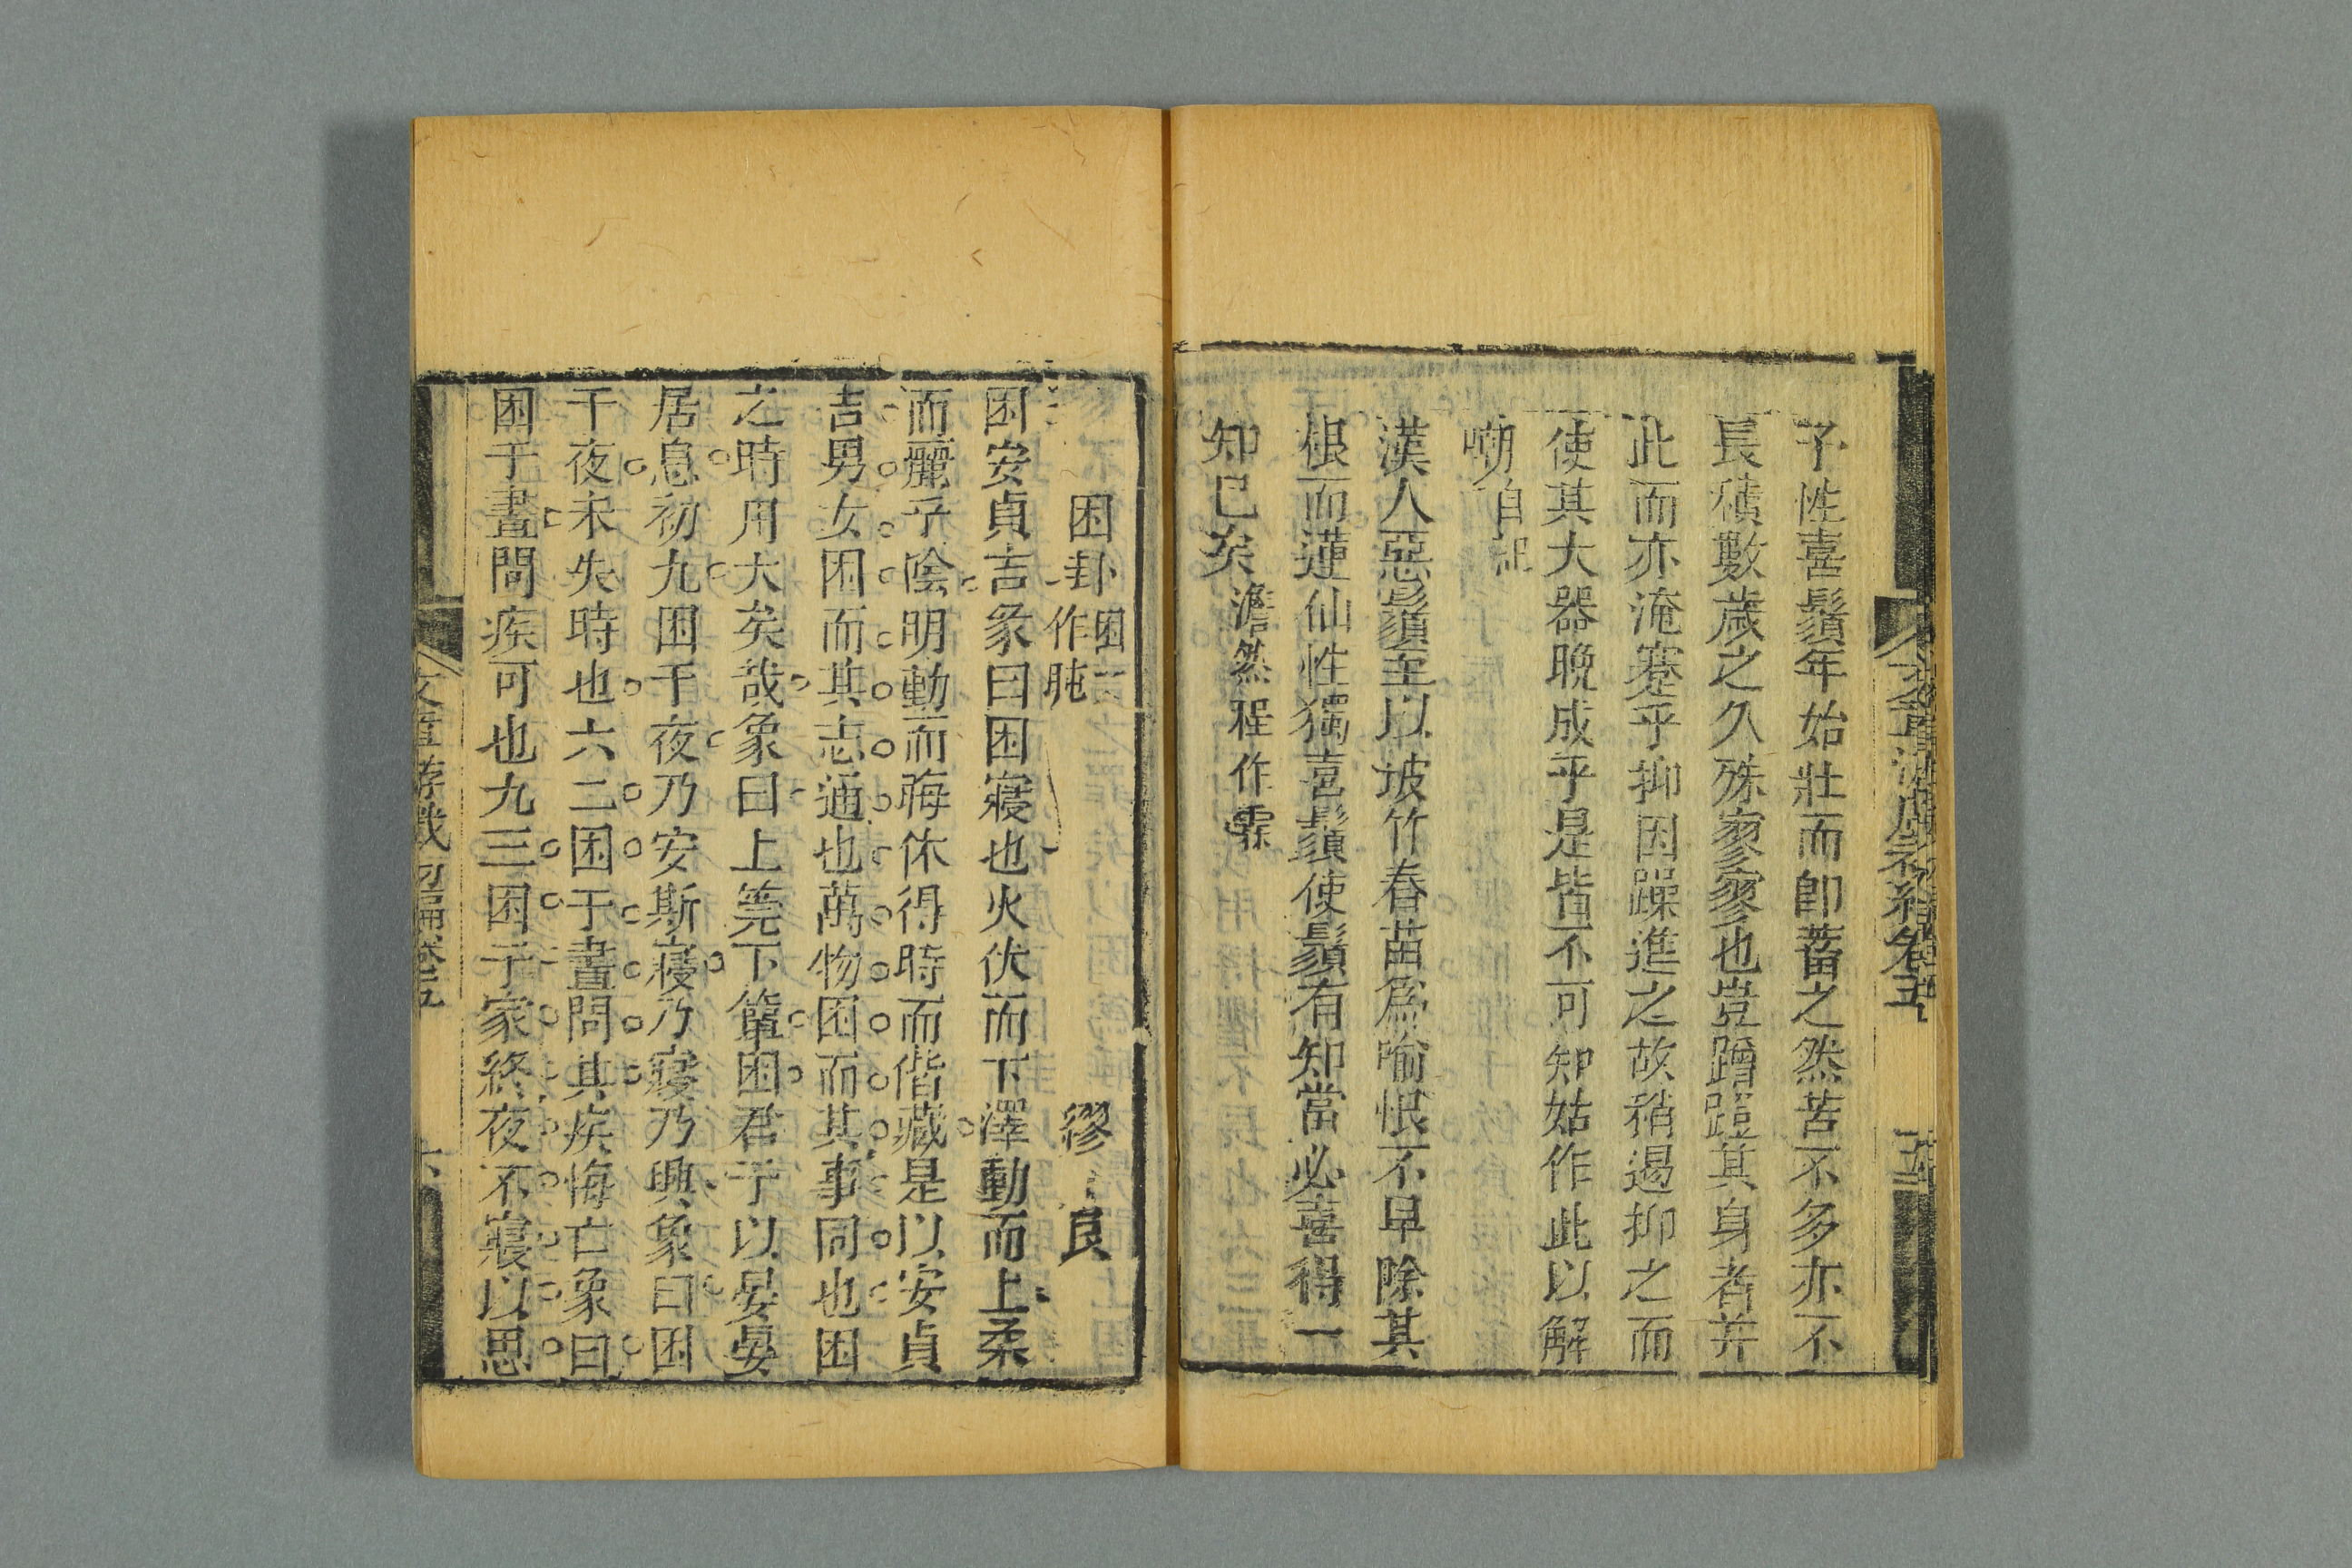 予性喜鬚年始壯而即蓄之然苦不多亦不
長積數歲之久殊寥寥也豈蹭蹬其身者并
此而亦淹蹇乎抑因躁進之故稍遏抑之而
使其大器晚成乎是皆不可知姑作此以解
嘲自記
漢人惡鬚至以坡竹春苗為喻恨不早除其
根而蓮仙性獨喜鬚使鬚有知當必喜得一
知己矣
澹然程作霖
困卦
困一作盹
繆艮
困安貞吉彖曰困寢也火伏而下澤動而上柔
而麗乎陰明動而晦休得時而偕藏是以安貞
吉男女困而其志通也萬物困而其事同也困
之時用大矣哉象曰上莞下簟困君子以晏晏
居息初九困于夜乃安斯寢乃寢乃興象曰困
于夜未失時也六二困于晝問其疾悔亡象曰
困于晝問疾可也九三困于家終夜不寢以思
文章游戲初編卷五
六